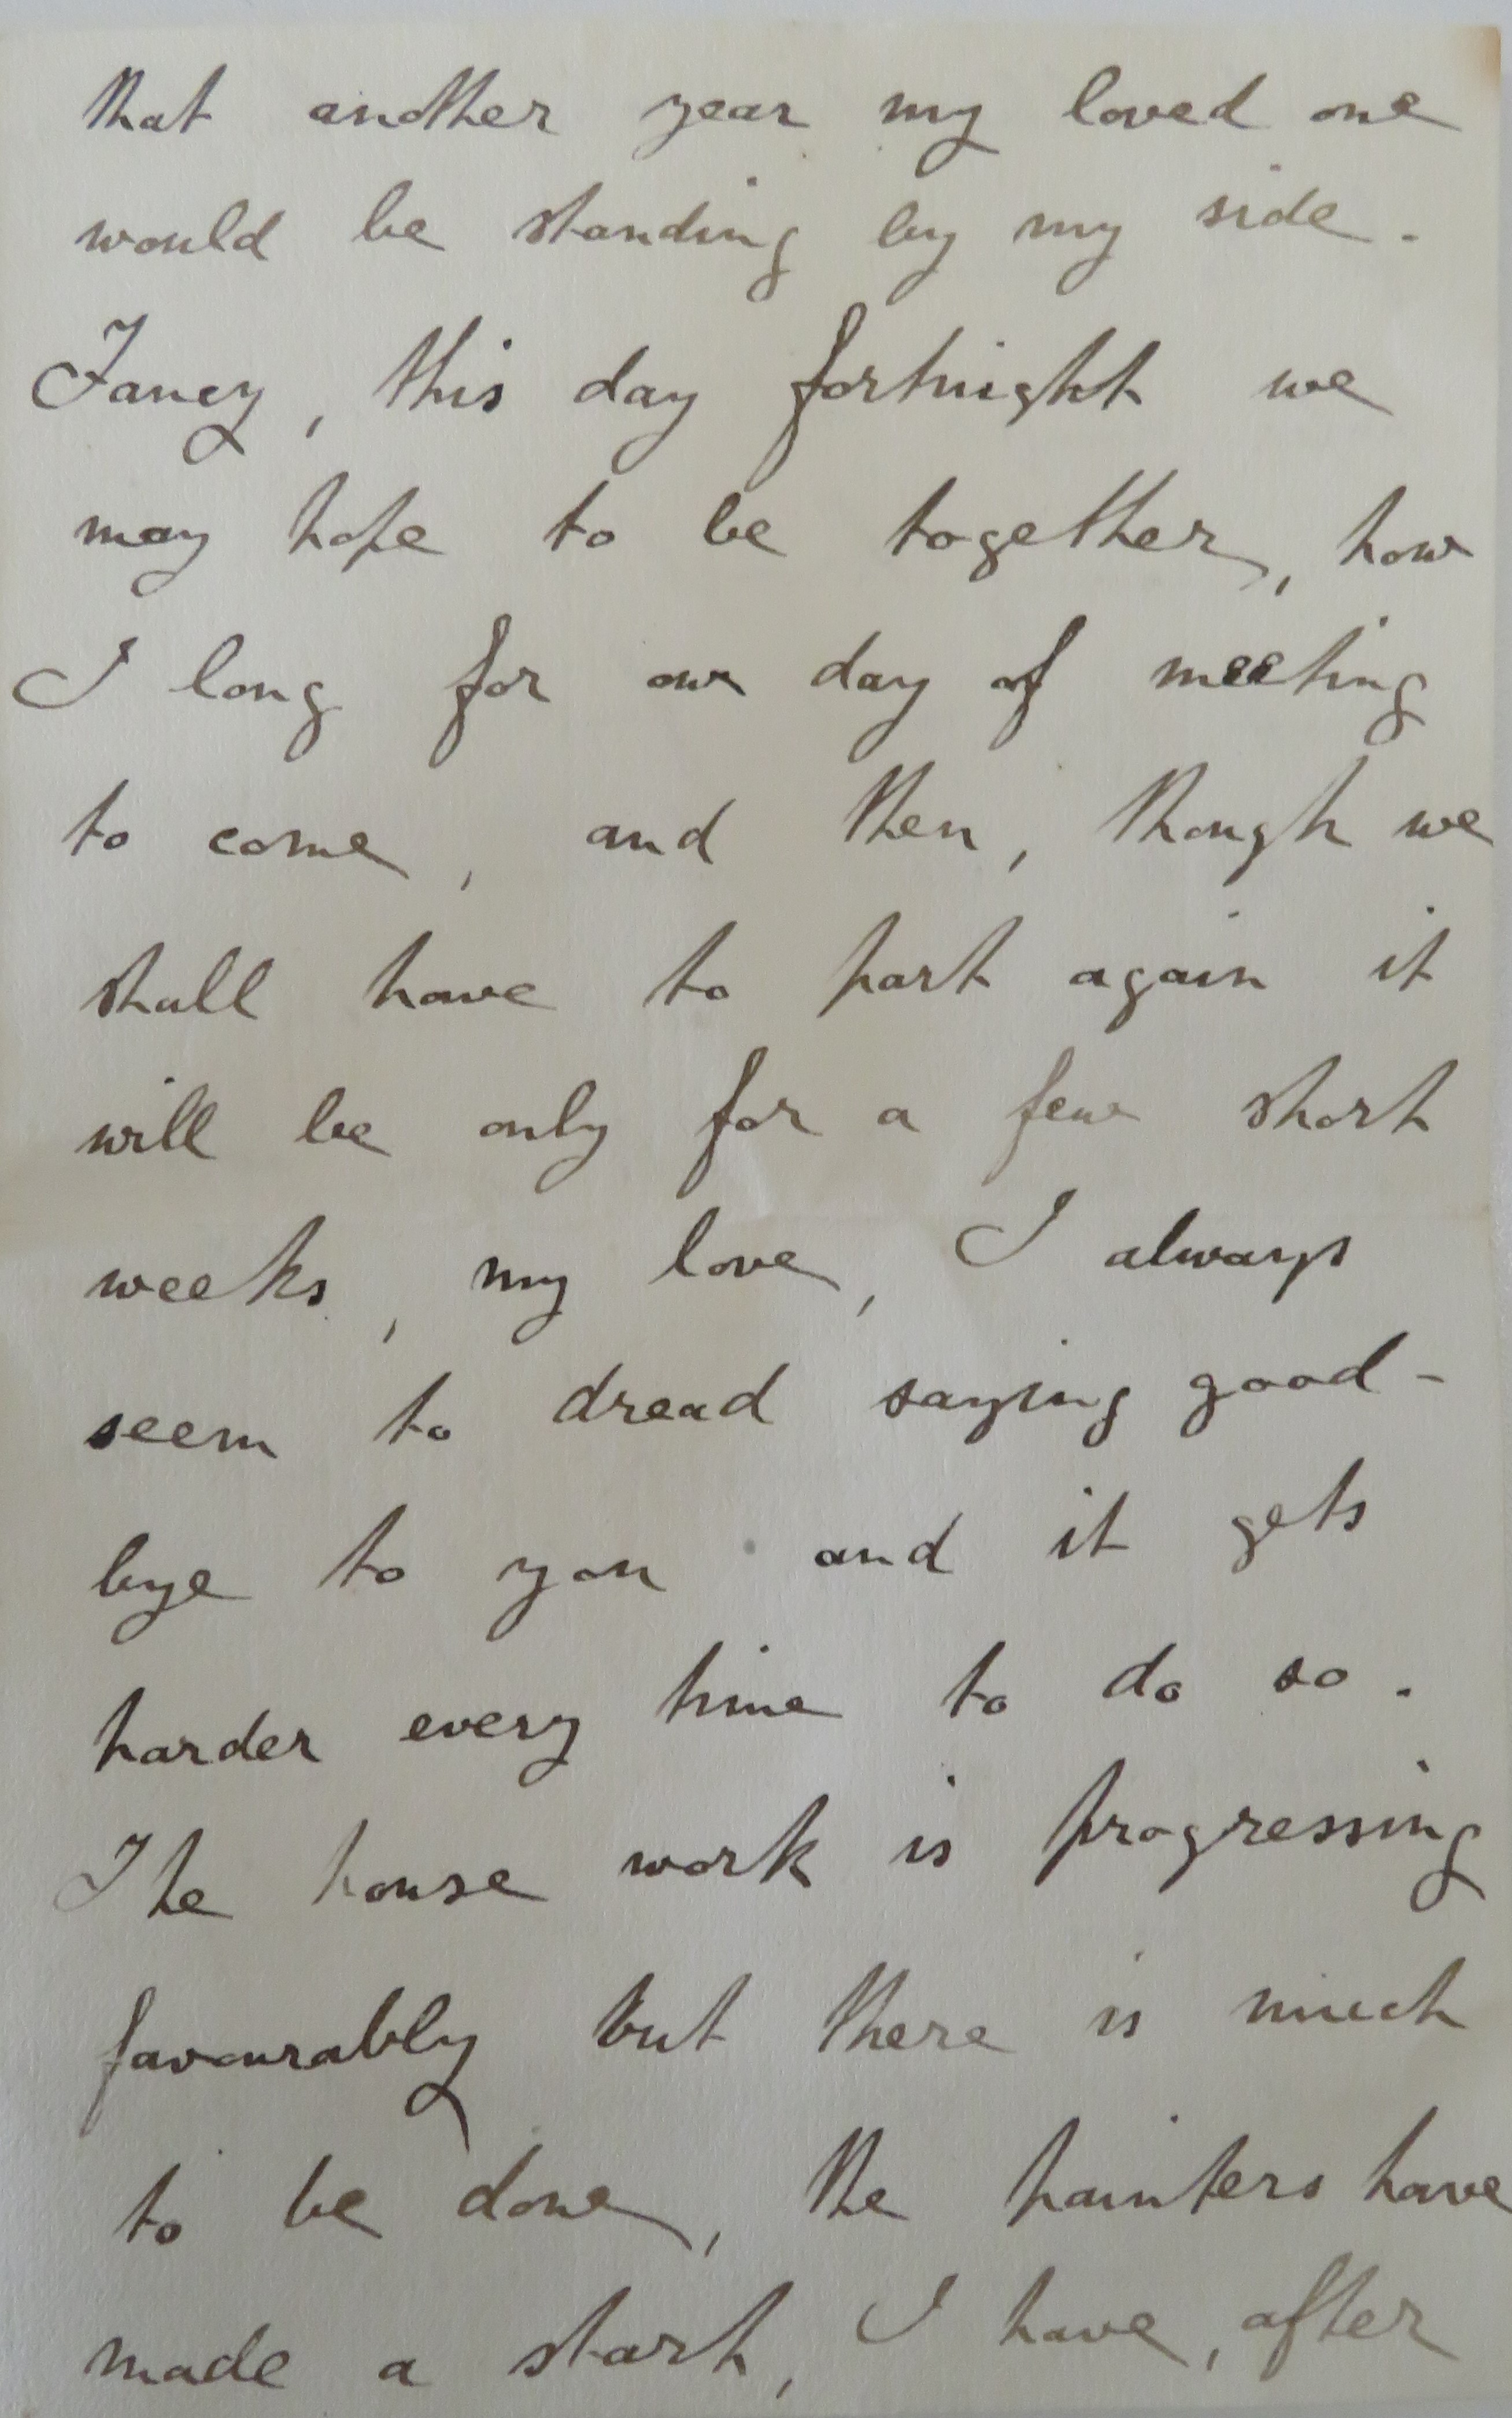 that another year my loved one
would be standing by my side.
Fancy, this day fortnight we
may hope to be together, how
I long for our day of meeting
to come, and then, though we
shall have to part again it
will be only for a few short
weeks, my love, I always
seem to dread saying good-
bye to you and it gets
harder every time to do so.
The house work is progressing
favourably but there is much
to be done, the painters have
made a start, I have, after